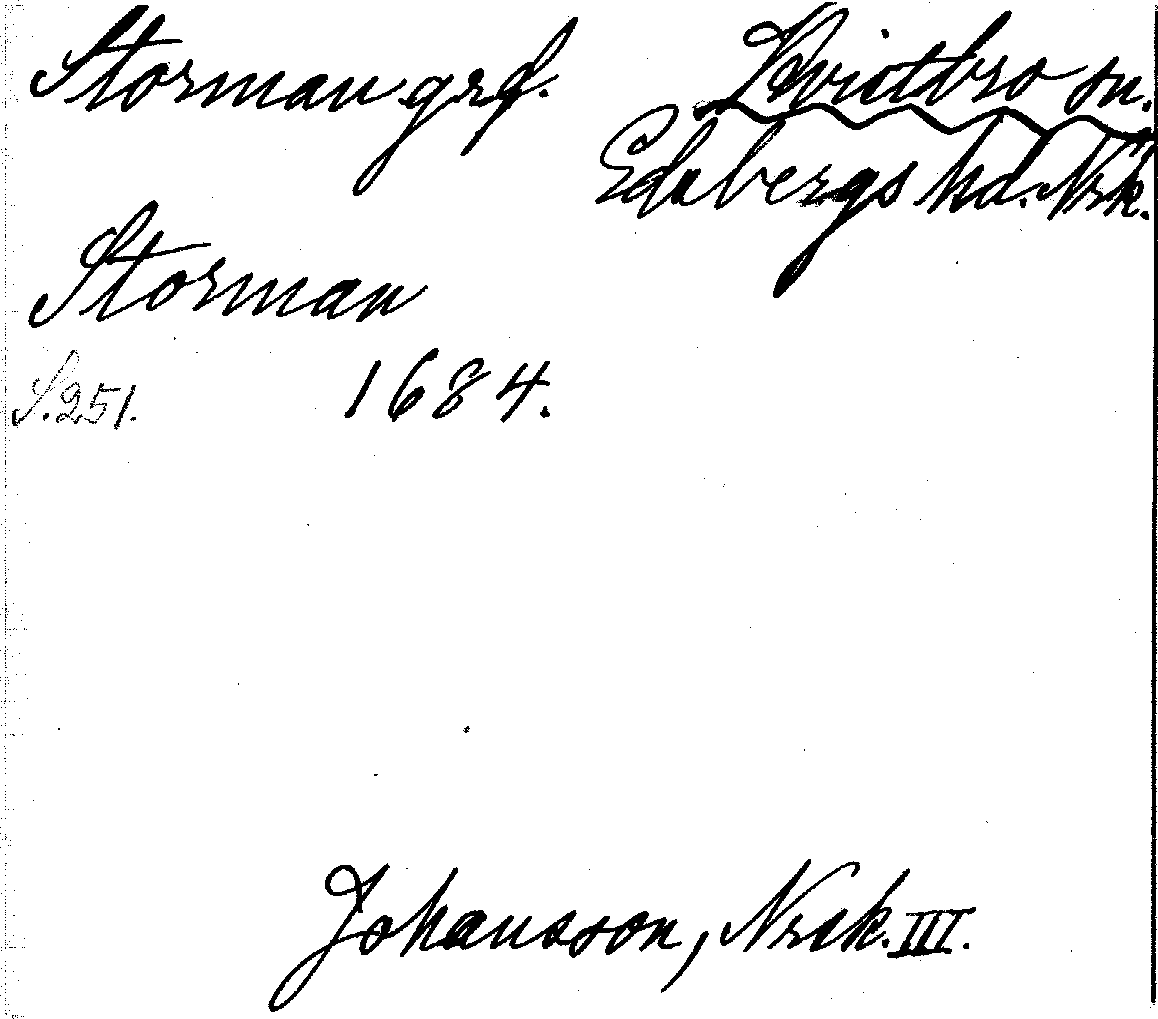 Storman grf. Kvistbro sn.
Edsbergs hd. Nrk.
Storman
S.251. 1684.
Johansson, Nrik. III.